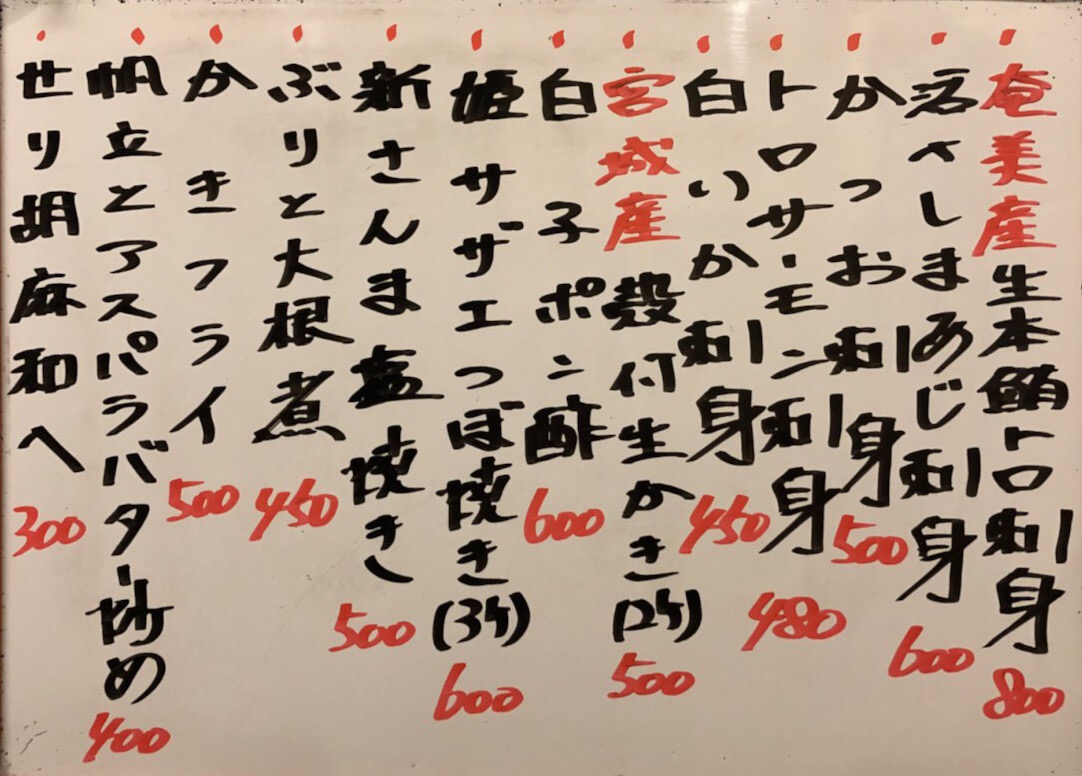 奄美産生本鮪トロ刺身 800
活〆しまあじ刺身 600
かつお刺身 500
トロサーモン刺身 480
白いか刺身 450
宮城産殻付生かき(2ケ) 500
白子ポン酢 600
姫サザエつぼ焼き(3ケ) 600
新さんま塩焼き 500
ぶりと大根煮 450
かきフライ 500
帆立とアスパラバター炒め 400
せり胡麻和へ 300